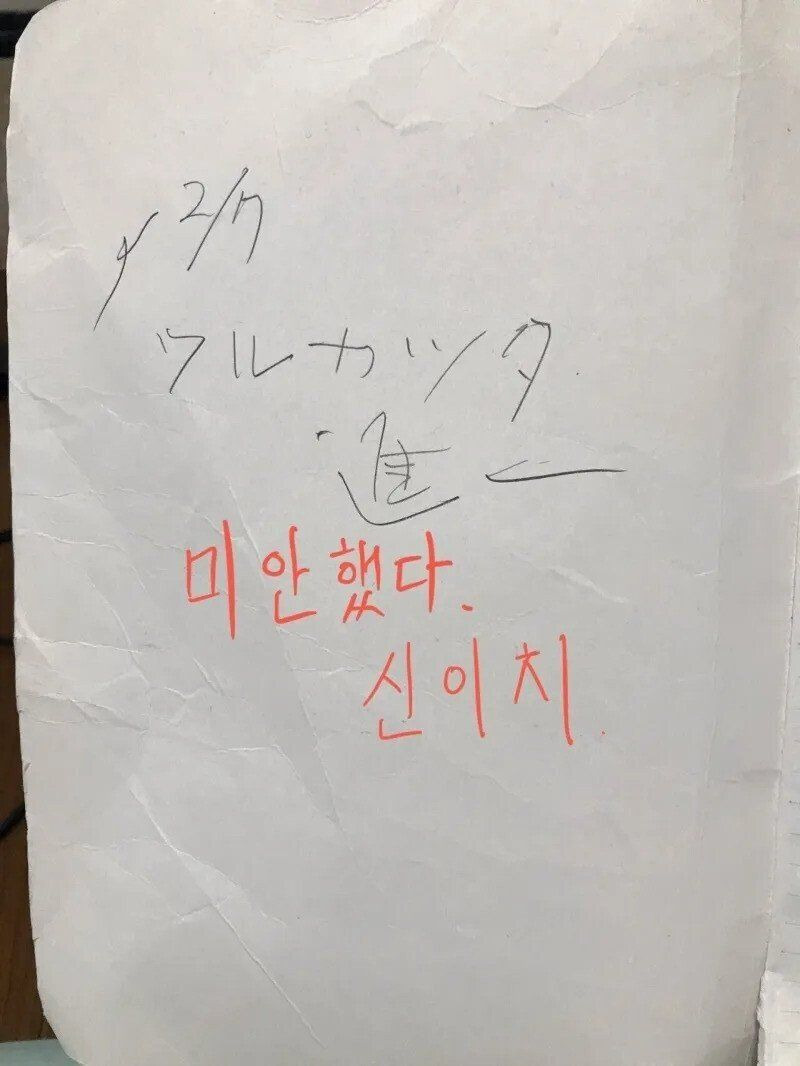 2/7
ワルカツタ
進一
미안했다.
신이치.